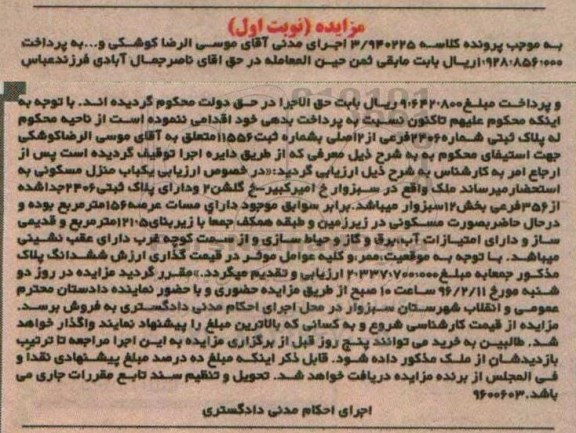 مزایده (نوبت اول)
به موجب پرونده کلاسه ۳/۹۴۰۲۲۵ اجرای مدنی آقای موسی الرضا کوشکی و...به پرداخت
۱۰۹۲۸۰۸۵۶۰۰۰ریال بابت مابقی ثمن حین المعامله در حق اقای ناصرجمال آبادی فرزندعباس
و پرداخت مبلغ۹۰۶۴۲۰۸۰۰ ریال بابت حق الاجرا در حق دولت محکوم گردیده اند. با توجه به
اینکه محکوم علیهم تاکنون نسبت به پرداخت بدهی خود اقدامی ننموده است از ناحیه محکوم
له پلاک ثبتی شماره۲۴۰۶فرعی از۲اصلی بشماره ثبت۱۱۵۵۶متعلق به آقای موسی الرضاکوشکی
جهت استیفای محکوم به به شرح ذیل معرفی که از طریق دایره اجرا توقیف گردیده است پس از
ارجاع امر به کارشناس به شرح ذیل ارزیابی گردید:«در خصوص ارزیابی یکباب منزل مسکونی به
استحضارمیرساند ملک واقع در سبزوار خ امیرکبیر-خ گلشن۲ ودارای پلاک ثبتی۲۴۰۶جداشده
از۳۵۶فرعی بخش۱۲سبزوار میباشد.برابر سوابق موجود دارای مسات عرصه۱۵۶مترمربع بوده و
درحال حاضربصورت مسکونی در زیرزمین و طبقه همکف جمعا با زیربنای۱۲۱۰۵مترمربع و قدیمی
ساز و دارای امتیازات آب،برق و گاز و حیاط سازی و از سمت کوچه غرب دارای عقب نشینی
میباشد. با توجه به موقعیت،ممر،و کلیه عوامل موثر در قیمت گذاری ارزش ششدانگ پلاک
مذکور جمعابه مبلغ۲۰۳۳۷۰۷۰۰۰۰۰۰ ارزیابی و تقدیم میگردد.»مقرر گردید مزایده در روز دو
شنبه مورخ ۹۶/۲/۱۱ ساعت ۱۰ صبح از طریق مزایده حضوری و با حضور نماینده دادستان محترم
عمومی و انقلاب شهرستان سبزوار در محل اجرای احکام مدنی دادگستری به فروش برسد.
مزایده از قیمت کارشناسی شروع و به کسانی که بالاترین مبلغ را پیشنهاد نمایند واگذار خواهد
شد. طالبین به خرید می توانند پنج روز قبل از برگزاری مزایده به این اجرا مراجعه تا ترتیب
بازدیدشان از ملک مذکور داده شود. قابل ذکر اینکه مبلغ ده درصد مبلغ پیشنهادی نقدا و
فی المجلس از برنده مزایده دریافت خواهد شد. تحویل و تنظیم سند تابع مقررات جاری می
باشد.۹۶۰۰۶۰۳
اجرای احکام مدنی دادگستری